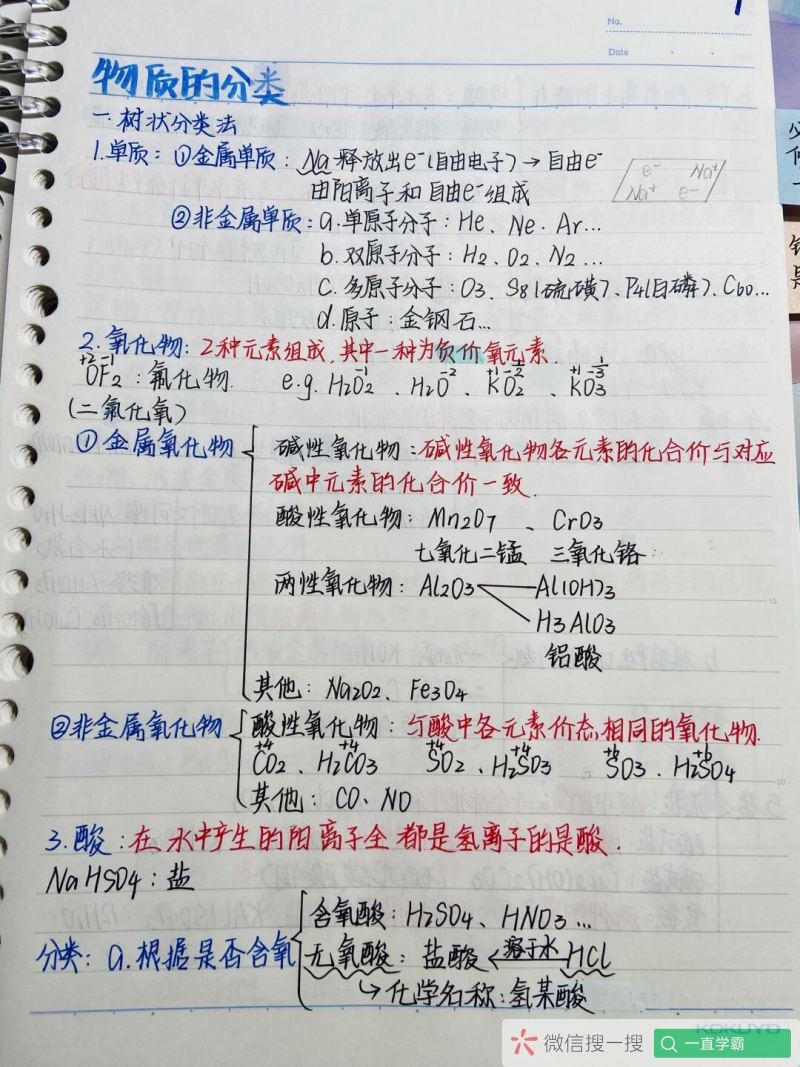 No.
Date
物质的分类
一.树状分类法
1.单质：①金属单质：Na释放出e⁻(自由电子)→自由e⁻
e⁻ Na⁺
由阳离子和自由e⁻组成
Na⁺ e⁻
②非金属单质：a.单原子分子：He、Ne.Ar...
b.双原子分子：H2、O2、N2...
c.多原子分子：O3、S8(硫磺)、P4(白磷)、C60...
d.原子：金钢石...
2.氧化物：2种元素组成,其中一种为负价氧元素.
+2 -1
OF2：氟化物. e.g. H2O2⁻¹、H2O⁻²、K⁺¹O2⁻¹/²、K⁺¹O3⁻¹/³
(二氟化氧)
①金属氧化物
碱性氧化物：碱性氧化物各元素的化合价与对应
碱中元素的化合价一致.
酸性氧化物：Mn2O7、CrO3
七氧化二锰 三氧化铬
两性氧化物：Al2O3 Al(OH)3
H3AlO3
铝酸
其他：Na2O2、Fe3O4
②非金属氧化物 酸性氧化物：与酸中各元素价态相同的氧化物.
+4 +4 +4 +4 +6 +6
CO2、H2CO3 SO2、H2SO3 SO3.H2SO4
其他：CO、NO
3.酸：在水中产生的阳离子全都是氢离子的是酸.
NaHSO4：盐
含氧酸：H2SO4、HNO3...
分类：a.根据是否含氧 无氧酸：盐酸←溶于水HCl
↳化学名称：氢某酸
KOKUYO
微信搜一搜 一直学霸